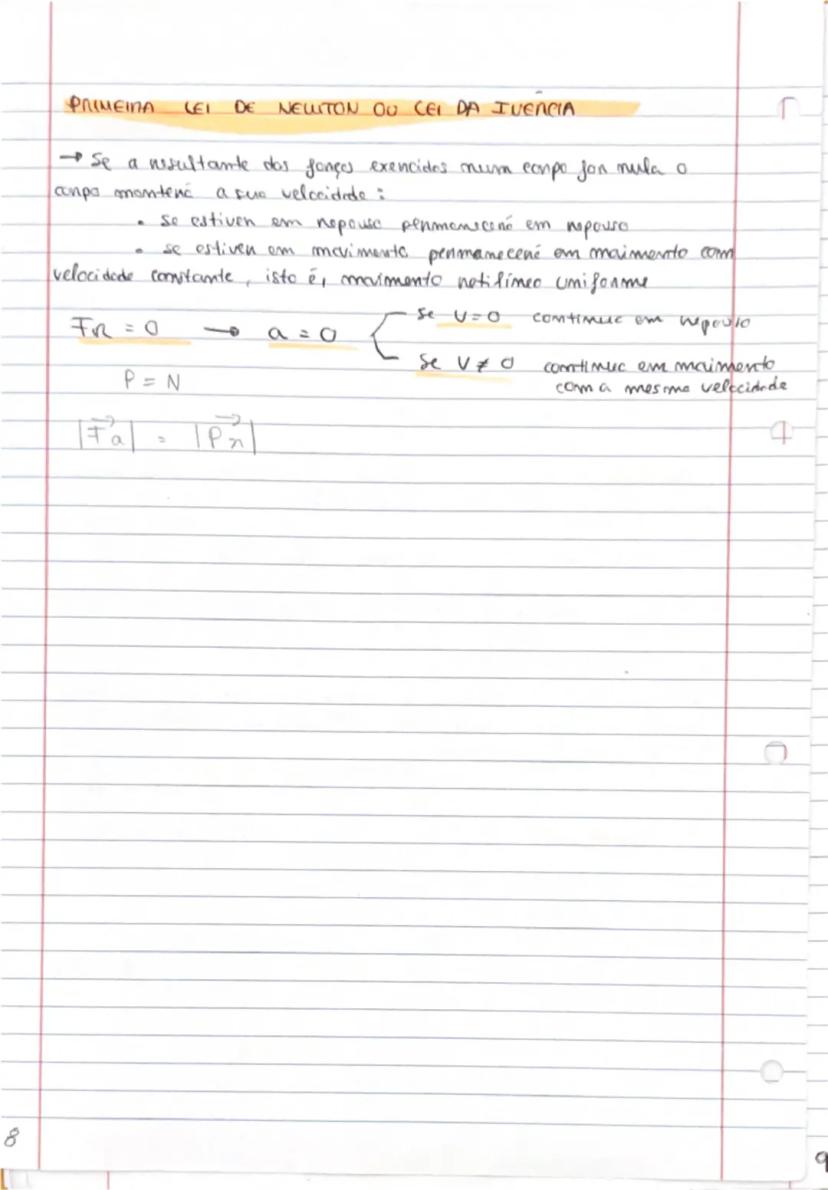 PRIMEIRA LEI DE NEWTON OU LEI DA INÉRCIA
→ Se a resultante das forças exercidas num corpo for nula o
corpo manterá a sua velocidade:
• se estiver em repouso permanecerá em repouso
• se estiver em movimento permanecerá em movimento com
velocidade constante, isto é, movimento retilíneo uniforme
FR = 0 → a = 0
se v=0 continue em repouso
se v≠0 continue em movimento
com a mesma velocidade
P = N
|Fa| = |Px|
8
9